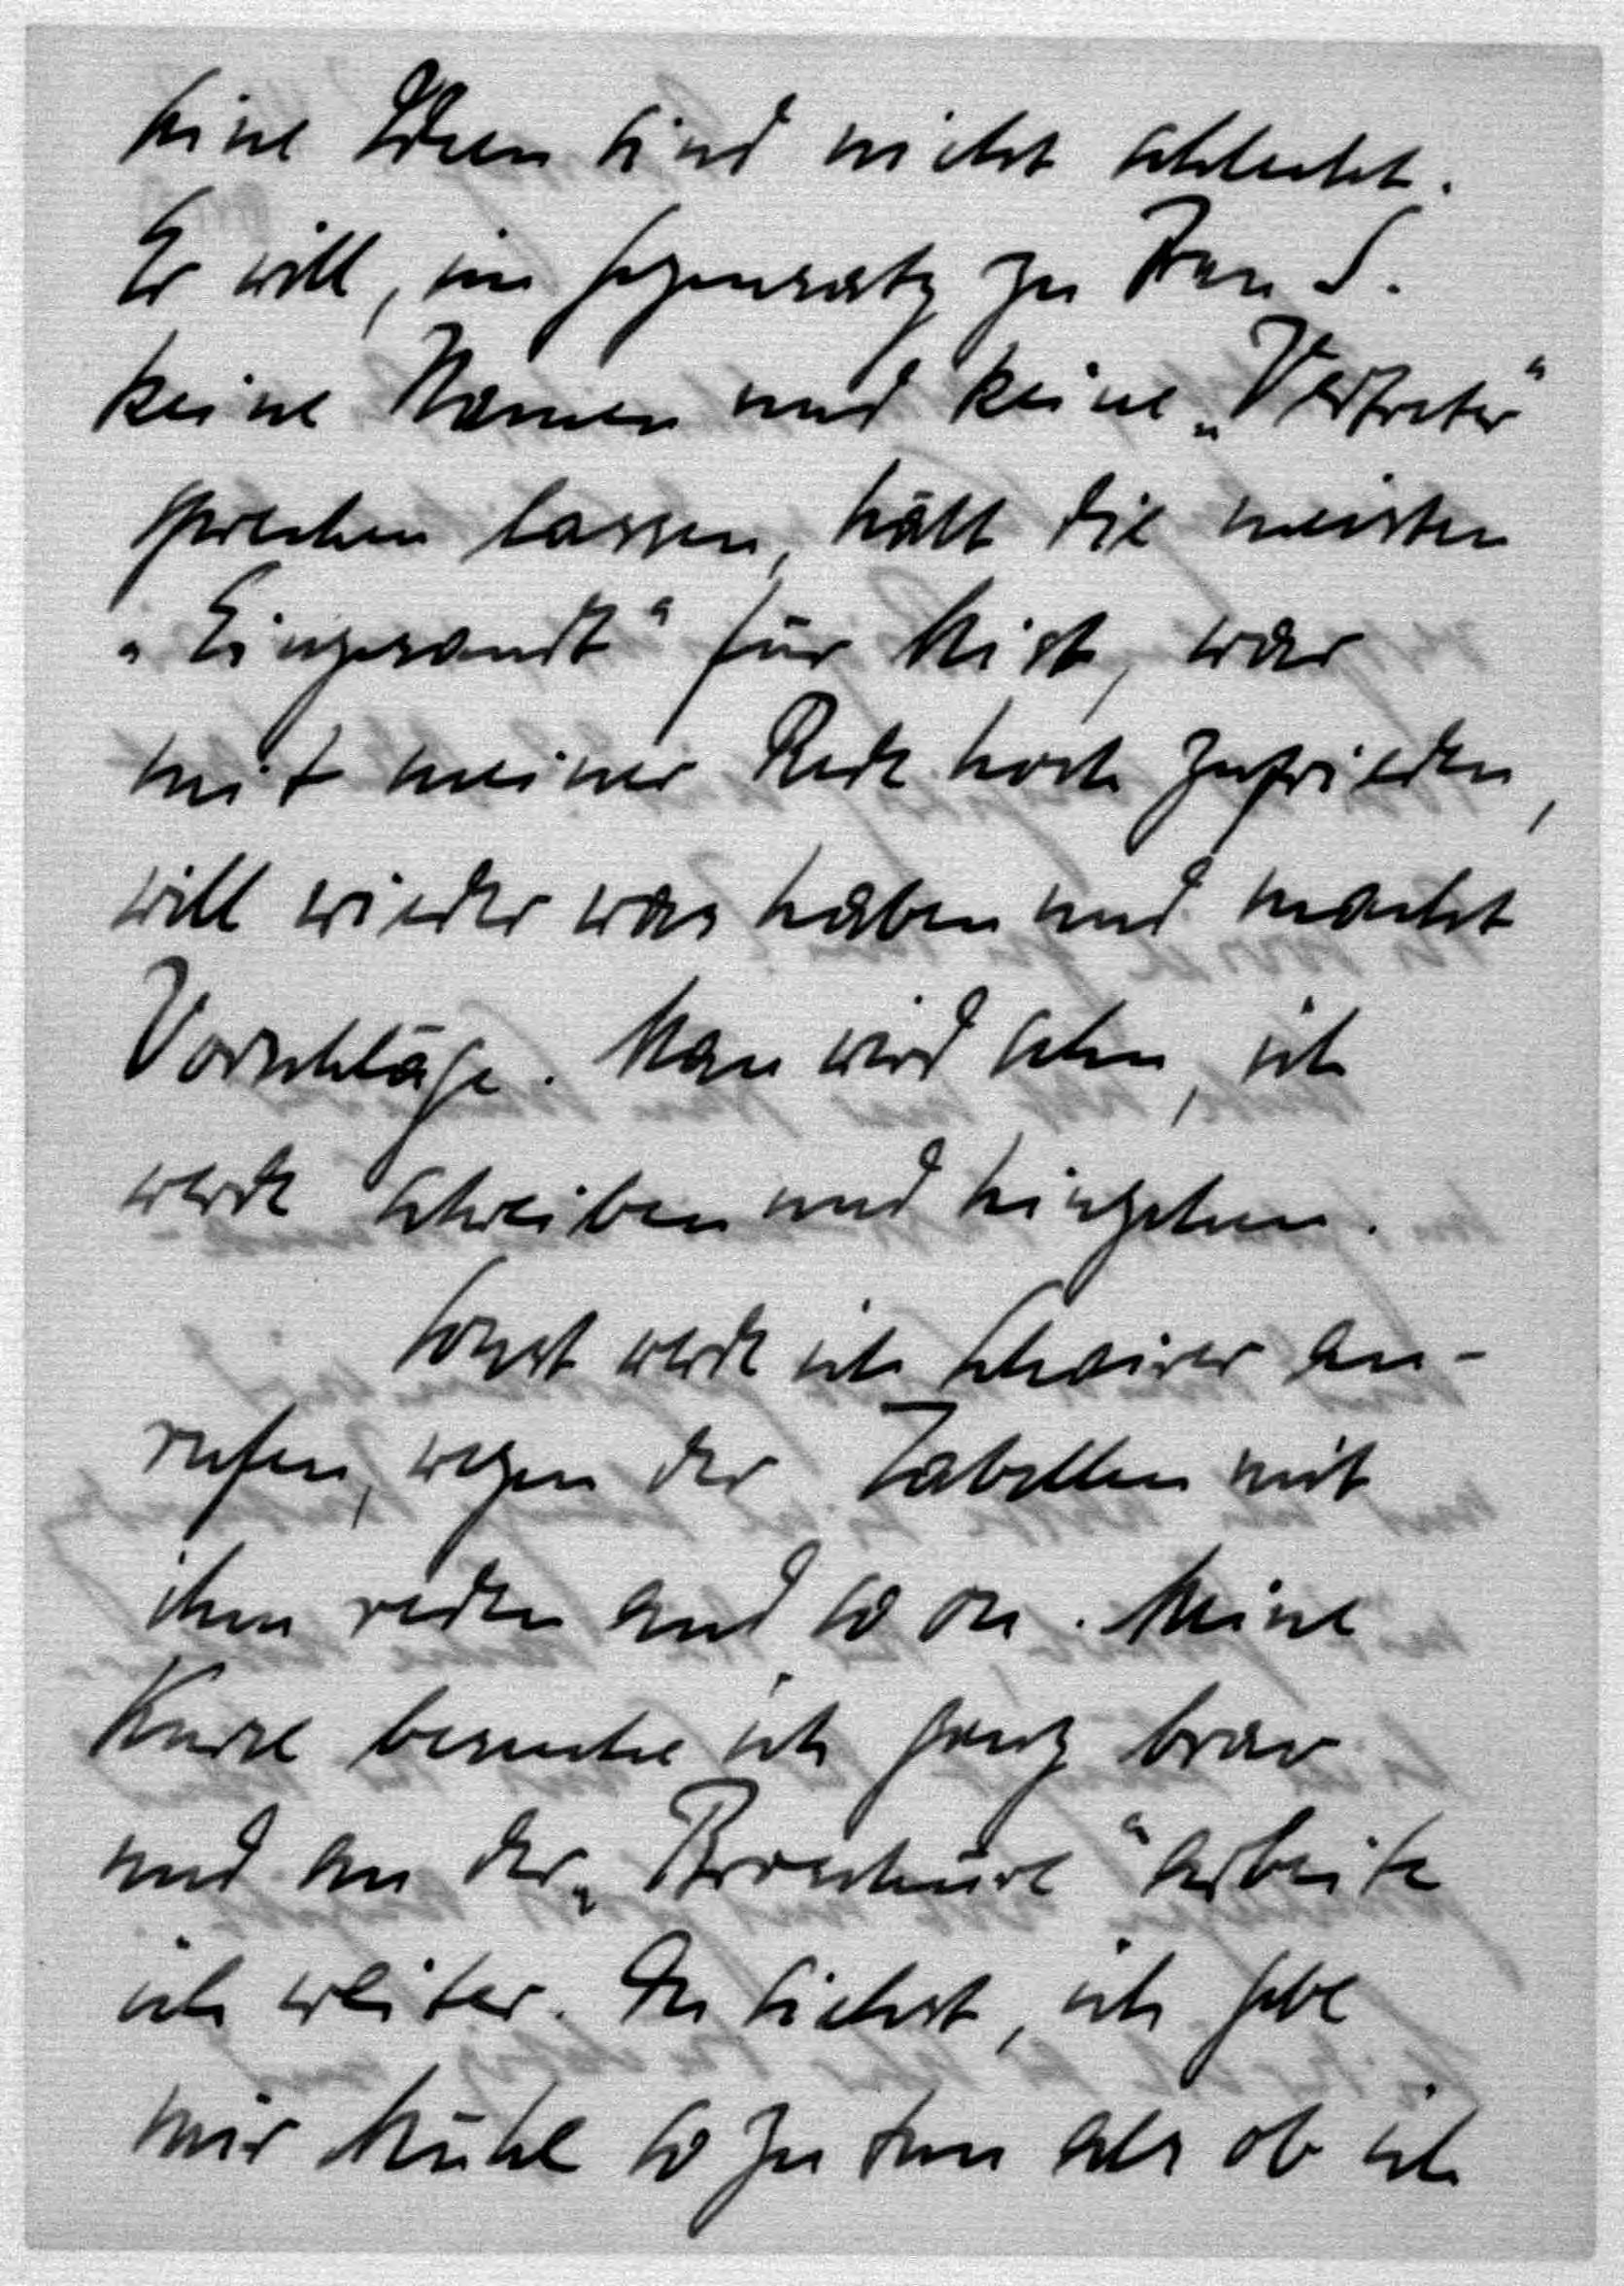 seine Ideen sind nicht schlecht.
Er will, im Gegensatz zu Frau S.
keine Namen und keine „Vertreter“
sprechen lassen, hält die meisten
„Eingesandt“ für Mist, war
mit meiner Rede hoch zufrieden,
will wieder was haben und macht
Vorschläge. Man wird sehen, ich
werde schreiben und hingehen.
Sonst werde ich an-
rufen, wegen der Tabellen mit
ihm reden und so on. Meine
Kurse besuche ich ganz brav
und an der „Broschüre“ arbeite
ich weiter. Du siehst, ich gebe
mir Mühe so zu tun als ob ich